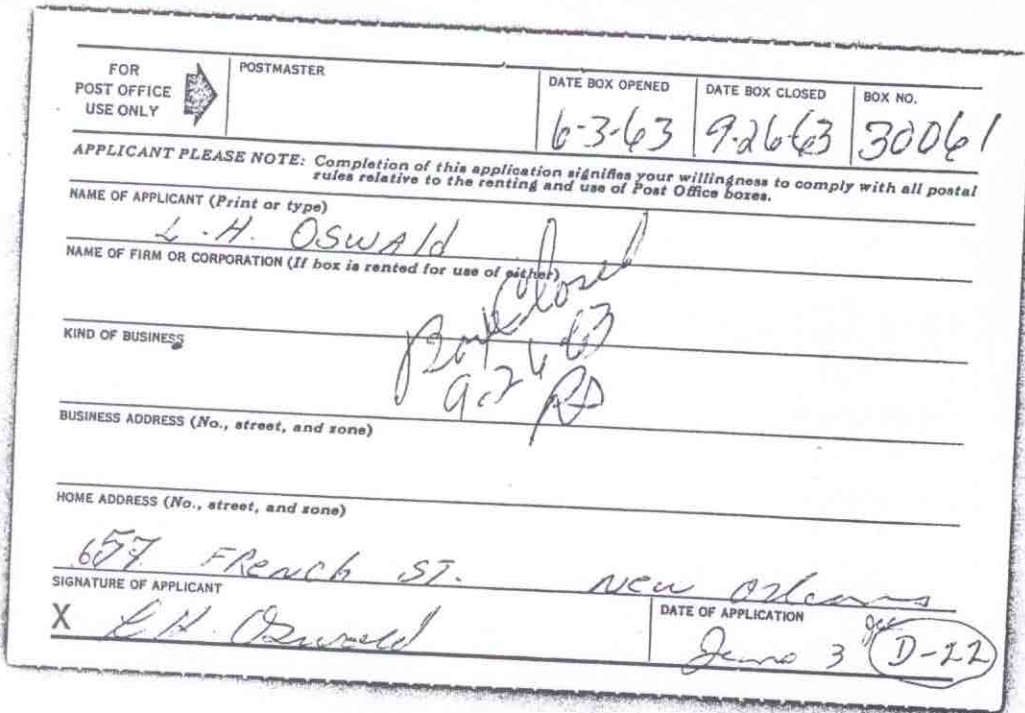 FOR POST OFFICE USE ONLY
POSTMASTER
DATE BOX OPENED
6-3-63
DATE BOX CLOSED
9-26-63
BOX NO.
30061
APPLICANT PLEASE NOTE: Completion of this application signifies your willingness to comply with all postal
rules relative to the renting and use of Post Office boxes.
NAME OF APPLICANT (Print or type)
L. H. OSWALd
NAME OF FIRM OR CORPORATION (If box is rented for use of either)
Box Closed
KIND OF BUSINESS
9-26-63
BUSINESS ADDRESS (No., street, and zone)
HOME ADDRESS (No., street, and zone)
657 FRench ST. New Orleans
SIGNATURE OF APPLICANT
X L H. Oswald
DATE OF APPLICATION
June 3
D-22